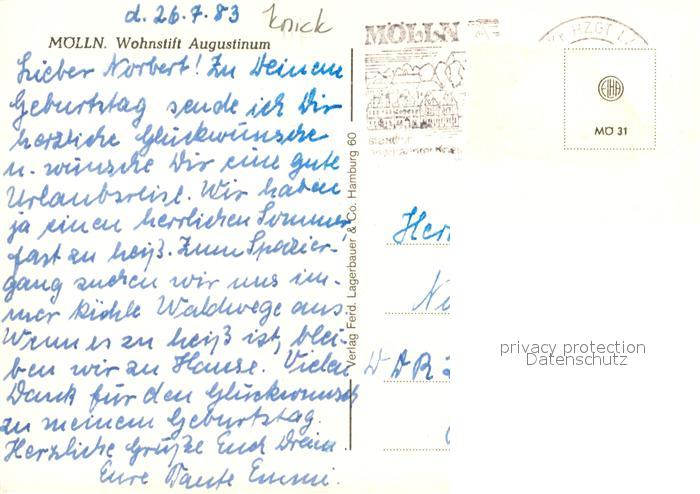 d. 26.7.83
knick
MÖLLN. Wohnstift Augustinum
Lieber Norbert! Zu Deinem
Geburtstag sende ich Dir
herzliche Glückwünsche
u. wünsche Dir eine gute
Urlaubsreise. Wir haben
ja einen herrlichen Sommer,
fast zu heiß. Zum Spazier-
gang suchen wir uns im-
mer kühle Waldwege aus
Wenn es zu heiß ist, blei-
ben wir zu Hause. Vielen
Dank für den Glückwunsch
zu meinem Geburtstag.
Herzliche Grüße Euch Dreien
Eure Tante Emmi.
Verlag Ferd. Lagerbauer & Co. Hamburg 60
MÖLLN
HZGT
EHA
MÖ 31
Her
DDR
privacy protection
Datenschutz